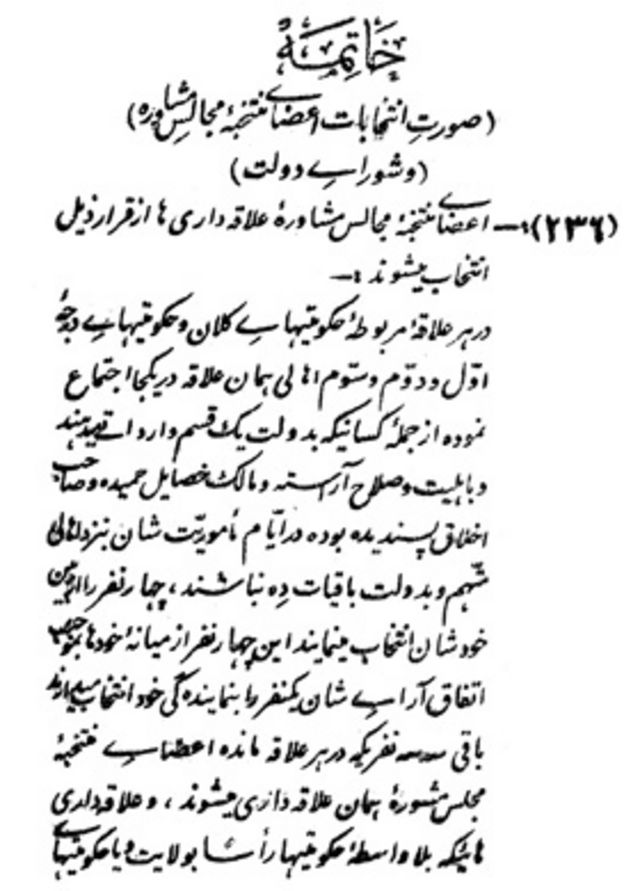 خاتمه
(صورتِ انتخابات اعضای منتخبهٔ مجالسِ مشاوره)
(و شورای دولت)
(۲۳۶):— اعضای منتخبهٔ مجالس مشاورهٔ علاقه‌داری ها از قرار ذیل
انتخاب میشوند :—
در هر علاقهٔ مربوطهٔ حکومتیهای کلان و حکومتیهای درجهٔ
اوّل و دوّم و سوّم اهالی همان علاقه در یکجا اجتماع
نموده از جملهٔ کسانیکه بدولت یک قسم وارداتی میدهند
و باهلیت و صلاح آراسته و مالک خصایل حمیده و صاحب
اخلاق پسندیده بوده در ایّام مأموریّت شان نیز نزد اهالی
متّهم و بدولت باقیات ده نباشند، چهار نفر را از بین
خودشان انتخاب مینمایند این چهار نفر از میانهٔ خودها بموجب
اتفاق آرای شان یکنفر را بنماینده گی خود انتخاب میدارند
باقی سه سه نفریکه در هر علاقه مانده اعضای منتخبهٔ
مجلس مشورهٔ همان علاقه داری میشوند، و علاقه داری
هائیکه بلا واسطهٔ حکومتیها رأسا بولایت و یا حکومتیهای